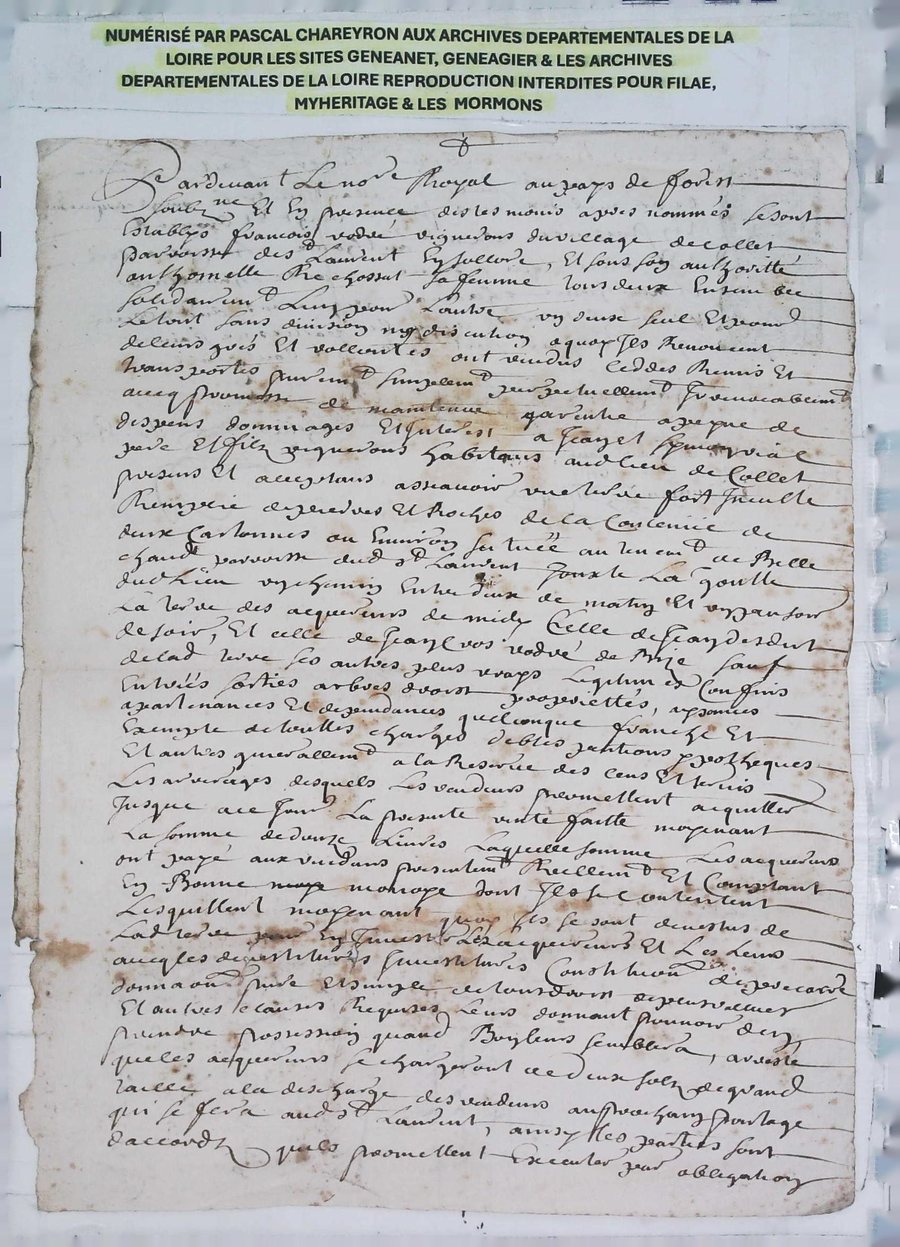 NUMÉRISÉ PAR PASCAL CHAREYRON AUX ARCHIVES DEPARTEMENTALES DE LA
LOIRE POUR LES SITES GENEANET, GENEAGIER & LES ARCHIVES
DEPARTEMENTALES DE LA LOIRE REPRODUCTION INTERDITES POUR FILAE,
MYHERITAGE & LES MORMONS
Pardevant Le nore Royal au pays de forest
soubzne Et En presence des tesmoins apres nommés se sont
Establys francois vigneron du village de Collet
parroisse de st Laurent En sollore, Et sous son authoritté
anthoinette sa femme tous deux Ensemble
solidairemt L'un pour L'autre un deux seul Et pour
Le tout sans division ny discution a quoy Ils Renoncent
de leurs grés Et vollontes ont vendus ceddes Remis Et
transportes puremt simplemt perpetuellemt Irrevocablemt
avecq promesse de maintenue garentie a peyne de
despens dommages Et Interest a
pere Et fils vignerons habitans audt lieu de Collet
presens Et acceptans assavoir une terre fort Inculte
Remplie de pierres Et Roches de la Contenue de
deux Cartonnes ou Environ scituée au tenemt de Belle
chaud parroisse dudt st Laurent Jouxte La goutte
dudt Lieu un chemin Entre deux de matin Et
La terre des acquereurs de midy Celle de
de soir, Et celle de de Bize sauf
de lad terre ses autres plus vrays Legitimes Confins
Entrées sorties arbres droist proprietés, aysances
apartenances Et dependances quelconque franche Et
Exempte de touttes charges debtes pantions ypotheques
Et autres generallemt a la Reserve des cens Et servis
Les arrerages desquels Les vendeurs promettent acquitter
Jusque a ce Jour La presente vente faitte moyenant
La somme de douze Livres Laquelle somme Les acquereurs
ont payé aux vendeurs presentemt Reellemt Et Comptant
En Bonne monoye dont Ils se Contentent
Les quittent moyenant quoy Ils se sont devestus de
Lad terre Les acquereurs Et Les Leurs
avecq les devestitures Investitures Constitution de precaire
donnaon pure Et simple de tous droist de plus valluer
Et autres clauses Requises Leurs donnant pouvoir d'en
prendre possession quand Bon leurs semblera, aresté
que les acquereurs se chargeront de deux solz de grand
taille a la descharge des vendeurs au prochain partage
qui se fera audt st Laurent, ainsy les parties sont
d'accordz quils promettent Executer par obligation